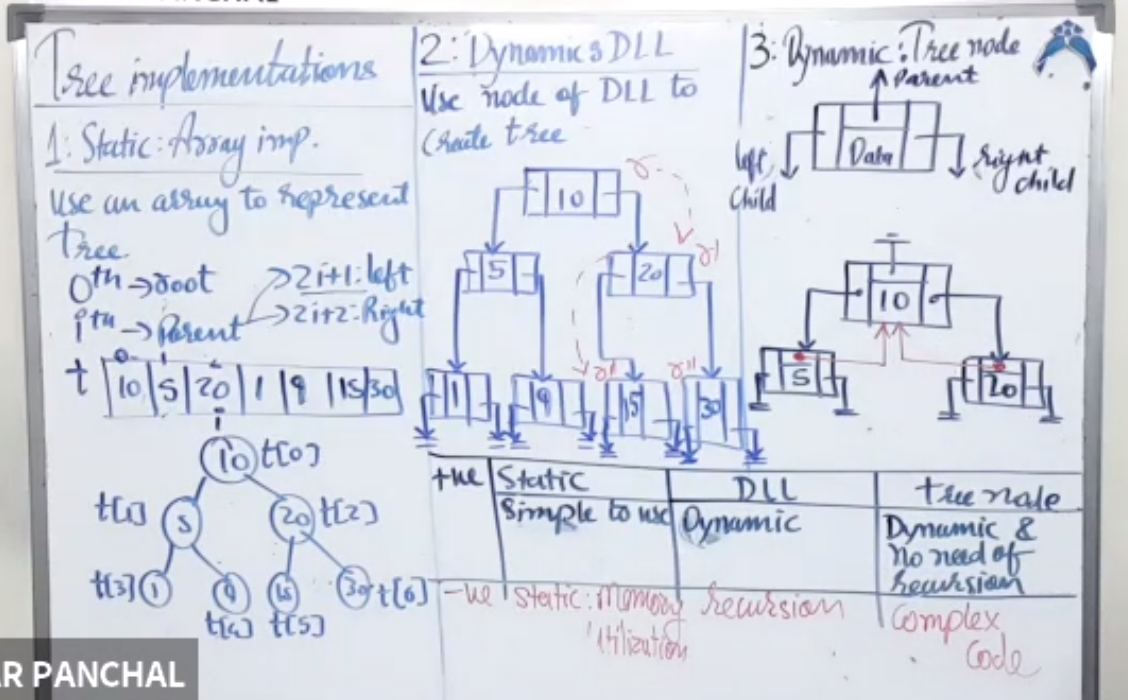 Tree implementations
1: Static: Array imp.
Use an array to represent
Tree.
0th → root
ith → Parent
2i+1: left
2i+2: Right
0 1 2
t 10 5 20 1 9 15 30
10 t[0]
t[1] 5 20 t[2]
t[3] 1 9 15 30 t[6]
t[4] t[5]
2: Dynamic: DLL
Use node of DLL to
Create tree
10 r
5 20 r'
1 9 r" 15 r" 30
3: Dynamic: Tree node
Parent
Data
left
Child
Right
child
10
5 20
+ve Static DLL tree node
Simple to use Dynamic Dynamic &
No need of
recursion
-ve static: Memory
Utilization
Recursion
Complex
Code
AR PANCHAL